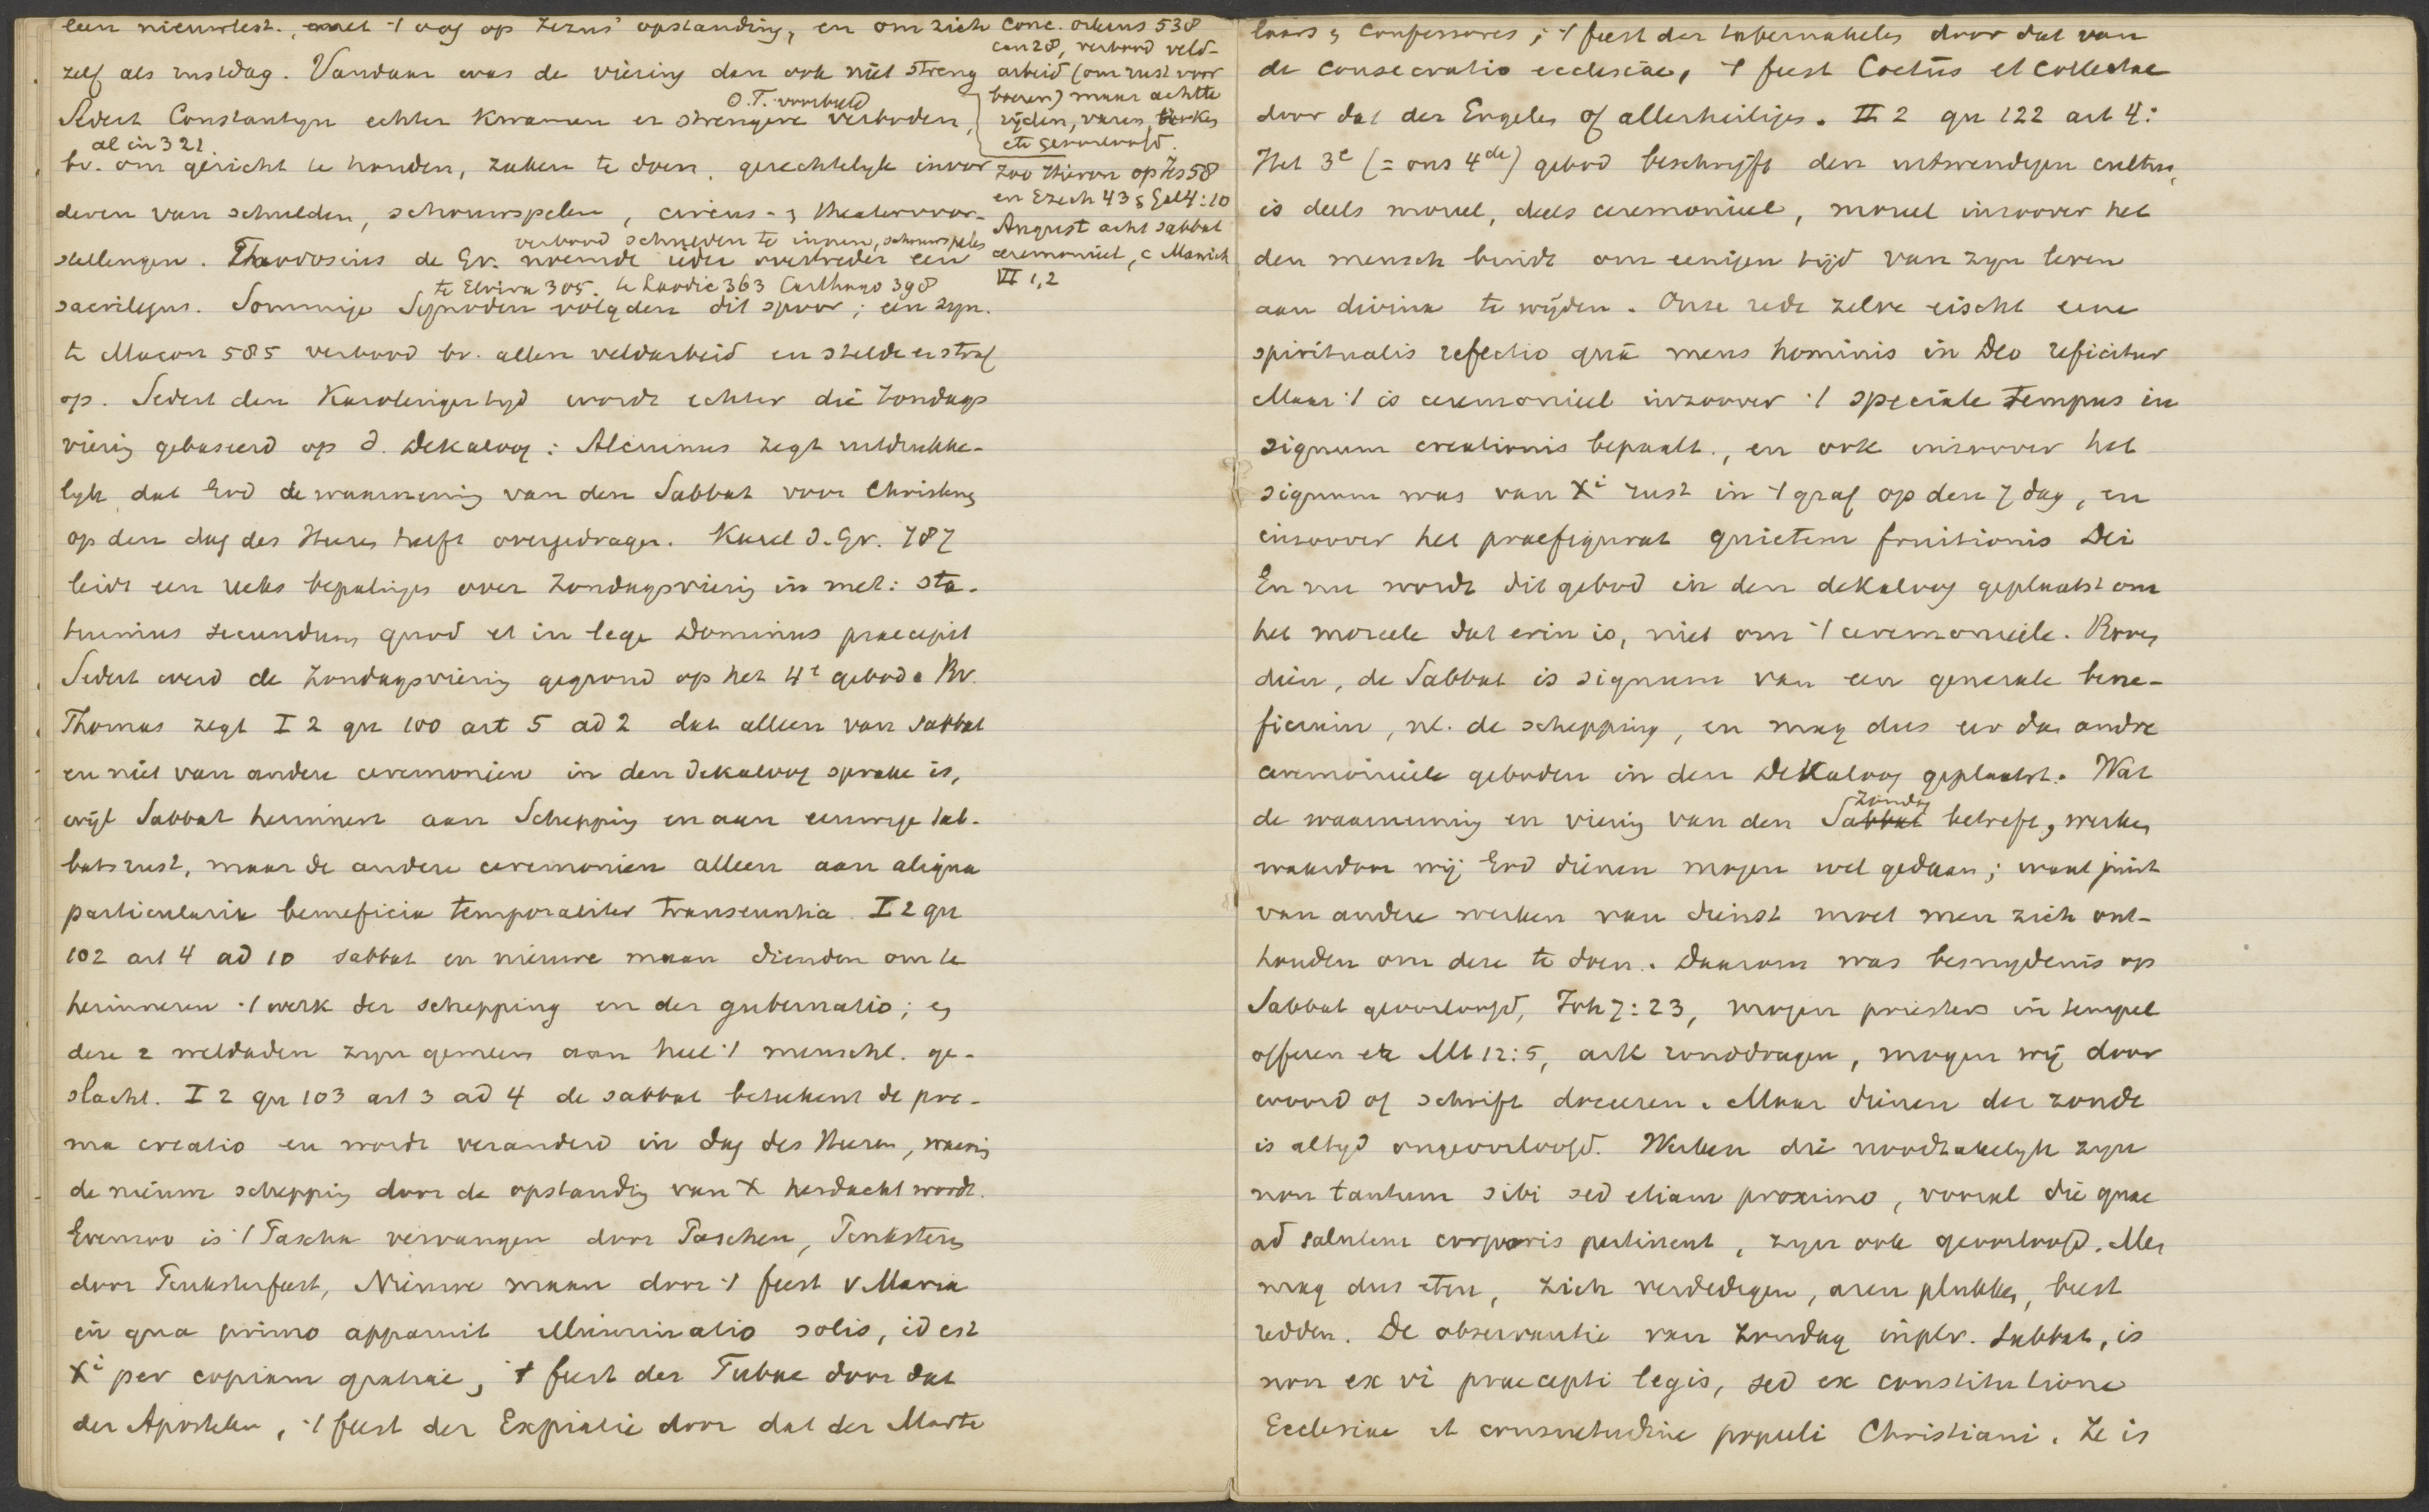 een nieuwtest., met 't oog op Jezus' opstanding, en om zich
zelf als rustdag. Vandaar was de viering dan ook niet streng
O.T. voorbeeld
Sedert Constantyn echter kwamen er strengere verboden,
al in 321
bv. om gericht te houden, zaken te doen, gerechtelyk invor
deren van schulden, schouwspelen, circus- & theatervoor-
verbood schulden te innen, schouwspelen
stellingen. Theodosius de Gr. noemde ieder overtreder een
te Elvira 305. te Laodic 363 Carthago 398
sacrilegus. Sommige Synoden volgden dit spoor; een syn.
te Macon 585 verbood bv. allen veldarbeid en stelde er straf
op. Sedert den Karolingertyd wordt echter die Zondags
viering gebaseerd op d. Dekaloog: Alcuinus zegt uitdrukke-
lyk dat God de waarneming van den Sabbat voor Christenen
op den dag des Heeren heeft overgedragen. Karel d. Gr. 787
leidt een reeks bepalingen over Zondagsviering in met: sta-
tuimus secundum quod et in lege Dominus praecepit
Sedert werd de Zondagsviering gegrond op het 4e gebod. Bv.
Thomas zegt I 2 qu 100 art 5 ad 2 dat alleen van sabbat
en niet van andere ceremonien in den dekaloog sprake is,
wijl Sabbat herinnert aan Schepping en aan eeuwige sab-
batsrust, maar de andere ceremonien alleen aan aliqua
particularia beneficia temporaliter transeuntia. I 2 qu
102 art 4 ad 10 sabbat en nieuwe maan dienden om te
herinneren 't werk der schepping en der gubernatio; en
deze 2 weldaden zyn gemeen aan heel 't menschl. ge-
slacht. I 2 qu 103 art 3 ad 4 de sabbat beteekent de pri-
ma creatio en wordt veranderd in dag des Heeren, waarin
de nieuwe schepping door de opstanding van X herdacht wordt.
Evenzoo is 't Pascha vervangen door Paschen, Pinksteren
door Pinksterfeest, Nieuwe maan door 't feest v Maria
in qua primo apparuit illuminatio solis, id est
Xi per copiam gratiae, 't feest der Tubae door dat
der Apostelen, 't feest der Expiatie door dat der Marte
Conc. Orleans 538
can 28, verbood veld-
arbeid (om rust voor
boeren) maar achtte
ryden, varen, koken
etc geoorloofd.
Zoo Hieron op Jes 58
en Ezech 43 & Gal 4:10
August acht sabbat
ceremonieel, c Manich
VI 1,2
laars & Confessores; 't feest der tabernakelen door dat van
de consecratio ecclesiae, 't feest Coetus et Collectae
door dat der Engelen of allerheiligen. II 2 qu 122 art 4:
Het 3e (= ons 4de) gebod beschrijft den uitwendigen cultus,
is deels moreel, deels ceremonieel, moreel inzoover het
den mensch bindt om eenigen tijd van zyn leven
aan divina te wyden. Onze rede zelve eischt eene
spiritualis refectio quâ mens hominis in Deo reficitur
Maar 't is ceremonieel inzoover 't speciale tempus in
signum creationis bepaalt., en ook inzoover het
signum was van Xi rust in 't graf op den 7 dag, en
inzoover het praefigurat quietem fruitionis Dei
En nu wordt dit gebod in den dekaloog geplaatst om
het moreele dat erin is, niet om 't ceremonieele. Boven
dien, de Sabbat is signum van een generale bene-
ficium, nl. de schepping, en mag dus eer dan andre
ceremonieele geboden in den Dekaloog geplaatst. Wat
Zondag
de waarneming en viering van den Sabbat betreft, werken
waardoor wij God dienen mogen wel gedaan; want juist
van andere werken van dienst moet men zich ont-
houden om deze te doen. Daarom was besnydenis op
Sabbat geoorloofd, Joh 7:23, mogen priesters in tempel
offeren etc Mt 12:5, ark ronddragen, mogen wij door
woord of schrift doceeren. Maar dienen der zonde
is altyd ongeoorloofd. Werken die noodzakelyk zyn
non tantum sibi sed etiam proximo, vooral die quae
ad salutem corporis pertinent, zyn ook geoorloofd. Men
mag dus eten, zich verdedigen, aren plukken, beest
redden. De observantie van Zondag inplv. Sabbat, is
non ex vi praecepti legis, sed ex constitutione
Ecclesiae et consuetudine populi Christiani. Ze is